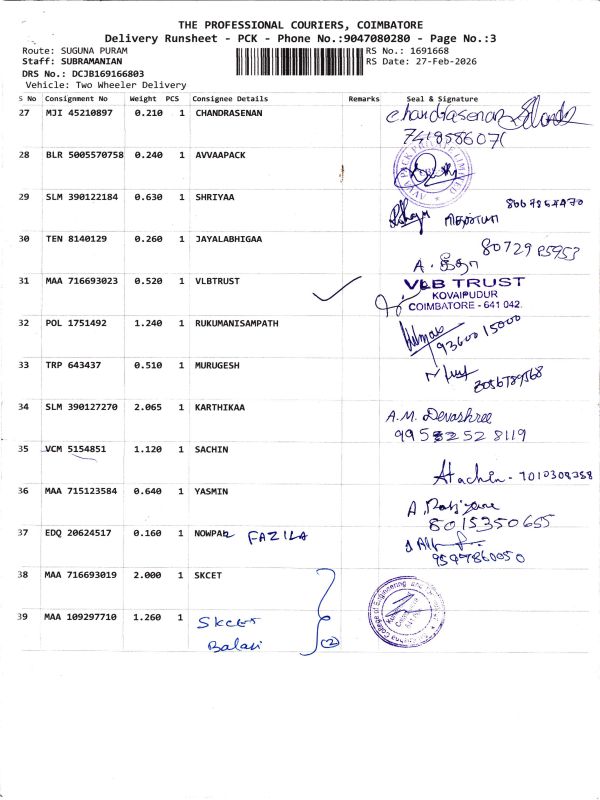 THE PROFESSIONAL COURIERS, COIMBATORE
Delivery Runsheet - PCK - Phone No.:9047080280 - Page No.:3
Route: SUGUNA PURAM
Staff: SUBRAMANIAN
DRS No.: DCJB169166803
Vehicle: Two Wheeler Delivery
RS No.: 1691668
RS Date: 27-Feb-2026
S No Consignment No Weight PCS Consignee Details Remarks Seal & Signature
27 MJI 45210897 0.210 1 CHANDRASENAN Chandrasenan
28 BLR 5005570758 0.240 1 AVVAAPACK
29 SLM 390122184 0.630 1 SHRIYAA
30 TEN 8140129 0.260 1 JAYALABHIGAA
A. கீதா
31 MAA 716693023 0.520 1 VLBTRUST VLB TRUST
KOVAIPUDUR
COIMBATORE - 641 042.
32 POL 1751492 1.240 1 RUKUMANISAMPATH
9360015000
33 TRP 643437 0.510 1 MURUGESH
34 SLM 390127270 2.065 1 KARTHIKAA A.M. Devashree
35 VCM 5154851 1.120 1 SACHIN
36 MAA 715123584 0.640 1 YASMIN
8015350655
37 EDQ 20624517 0.160 1 NOWPAR FAZILA
38 MAA 716693019 2.000 1 SKCET
39 MAA 109297710 1.260 1 SKCET
Balaji (2)